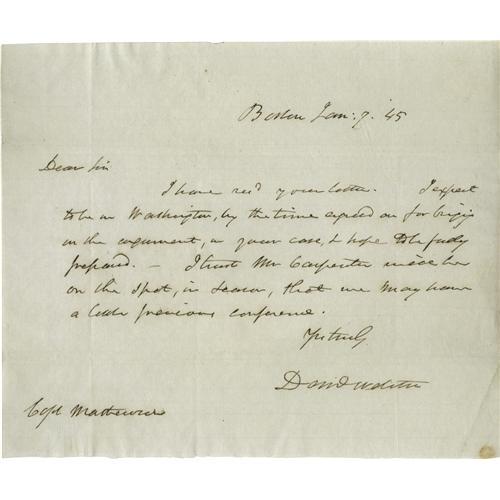 Boston Jan: 7. 45
Dear Sir
I have rec'd your letter. I expect
to be in Washington, by the time agreed on for bringing
on the argument, in your case, & hope to be fully
prepared. — I trust Mr Carpenter will be
on the spot, in season, that we may have
a little previous conference.
Yrs truly
Danl Webster
Capt Mathewson